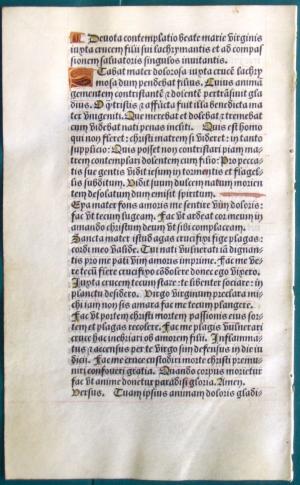 Deuota contemplatio beate marie virginis
iuxta crucem filij sui lachrymantis et ad compas
sionem saluatoris singulos inuitantis.
Stabat mater dolorosa iuxta crucē lachry
mosa dum pendebat filius. Cuius animā
gementem contristantē z dolentē pertrāsiuit gla
dius. O q̄ tristis z afflicta fuit illa benedicta ma
ter vnigeniti. Que merebat et dolebat z tremebat
cum videbat nati penas incliti. Quis est homo
qui non fleret: christi matrem si videret: in tanto
supplicio: Quis posset non contristari piam ma
trem contemplari dolentem cum filio: Pro pecca
tis sue gentis vidit iesum in tormentis et flagel
lis subditum. Vidit suum dulcem natum morien
tem desolatum dum emisit spiritum.
Eya mater fons amoris me sentire vim doloris:
fac vt tecum lugeam. Fac vt ardeat cor meum in
amando christum deum vt sibi complaceam.
Sancta mater istud agas crucifixi fige plagas:
cordi meo valide. Tui nati vulnerati tā dignan
tis pro me pati vim amoris imprime. Fac me ve
re tecū flere crucifixo cōdolere donec ego vixero.
Iuxta crucem tecum stare: te libenter sociare: in
planctu desidero. Virgo virginum preclara mi
chi iam non sis amara fac me tecum plangere.
Fac vt portem christi mortem passionis eius sor
tem et plagas recolere. Fac me plagis vulnerari
cruce hac inebriari ob amorem filij. Inflam
matus z accensus per te virgo sim defensus in die iu
dicij. Fac me cruce custodiri morte christi premu
niri confoueri gratia. Quando corpus morietur
fac vt anime donetur paradisi gloria. Amen.
Versus. Tuam ipsius animam doloris gladi-